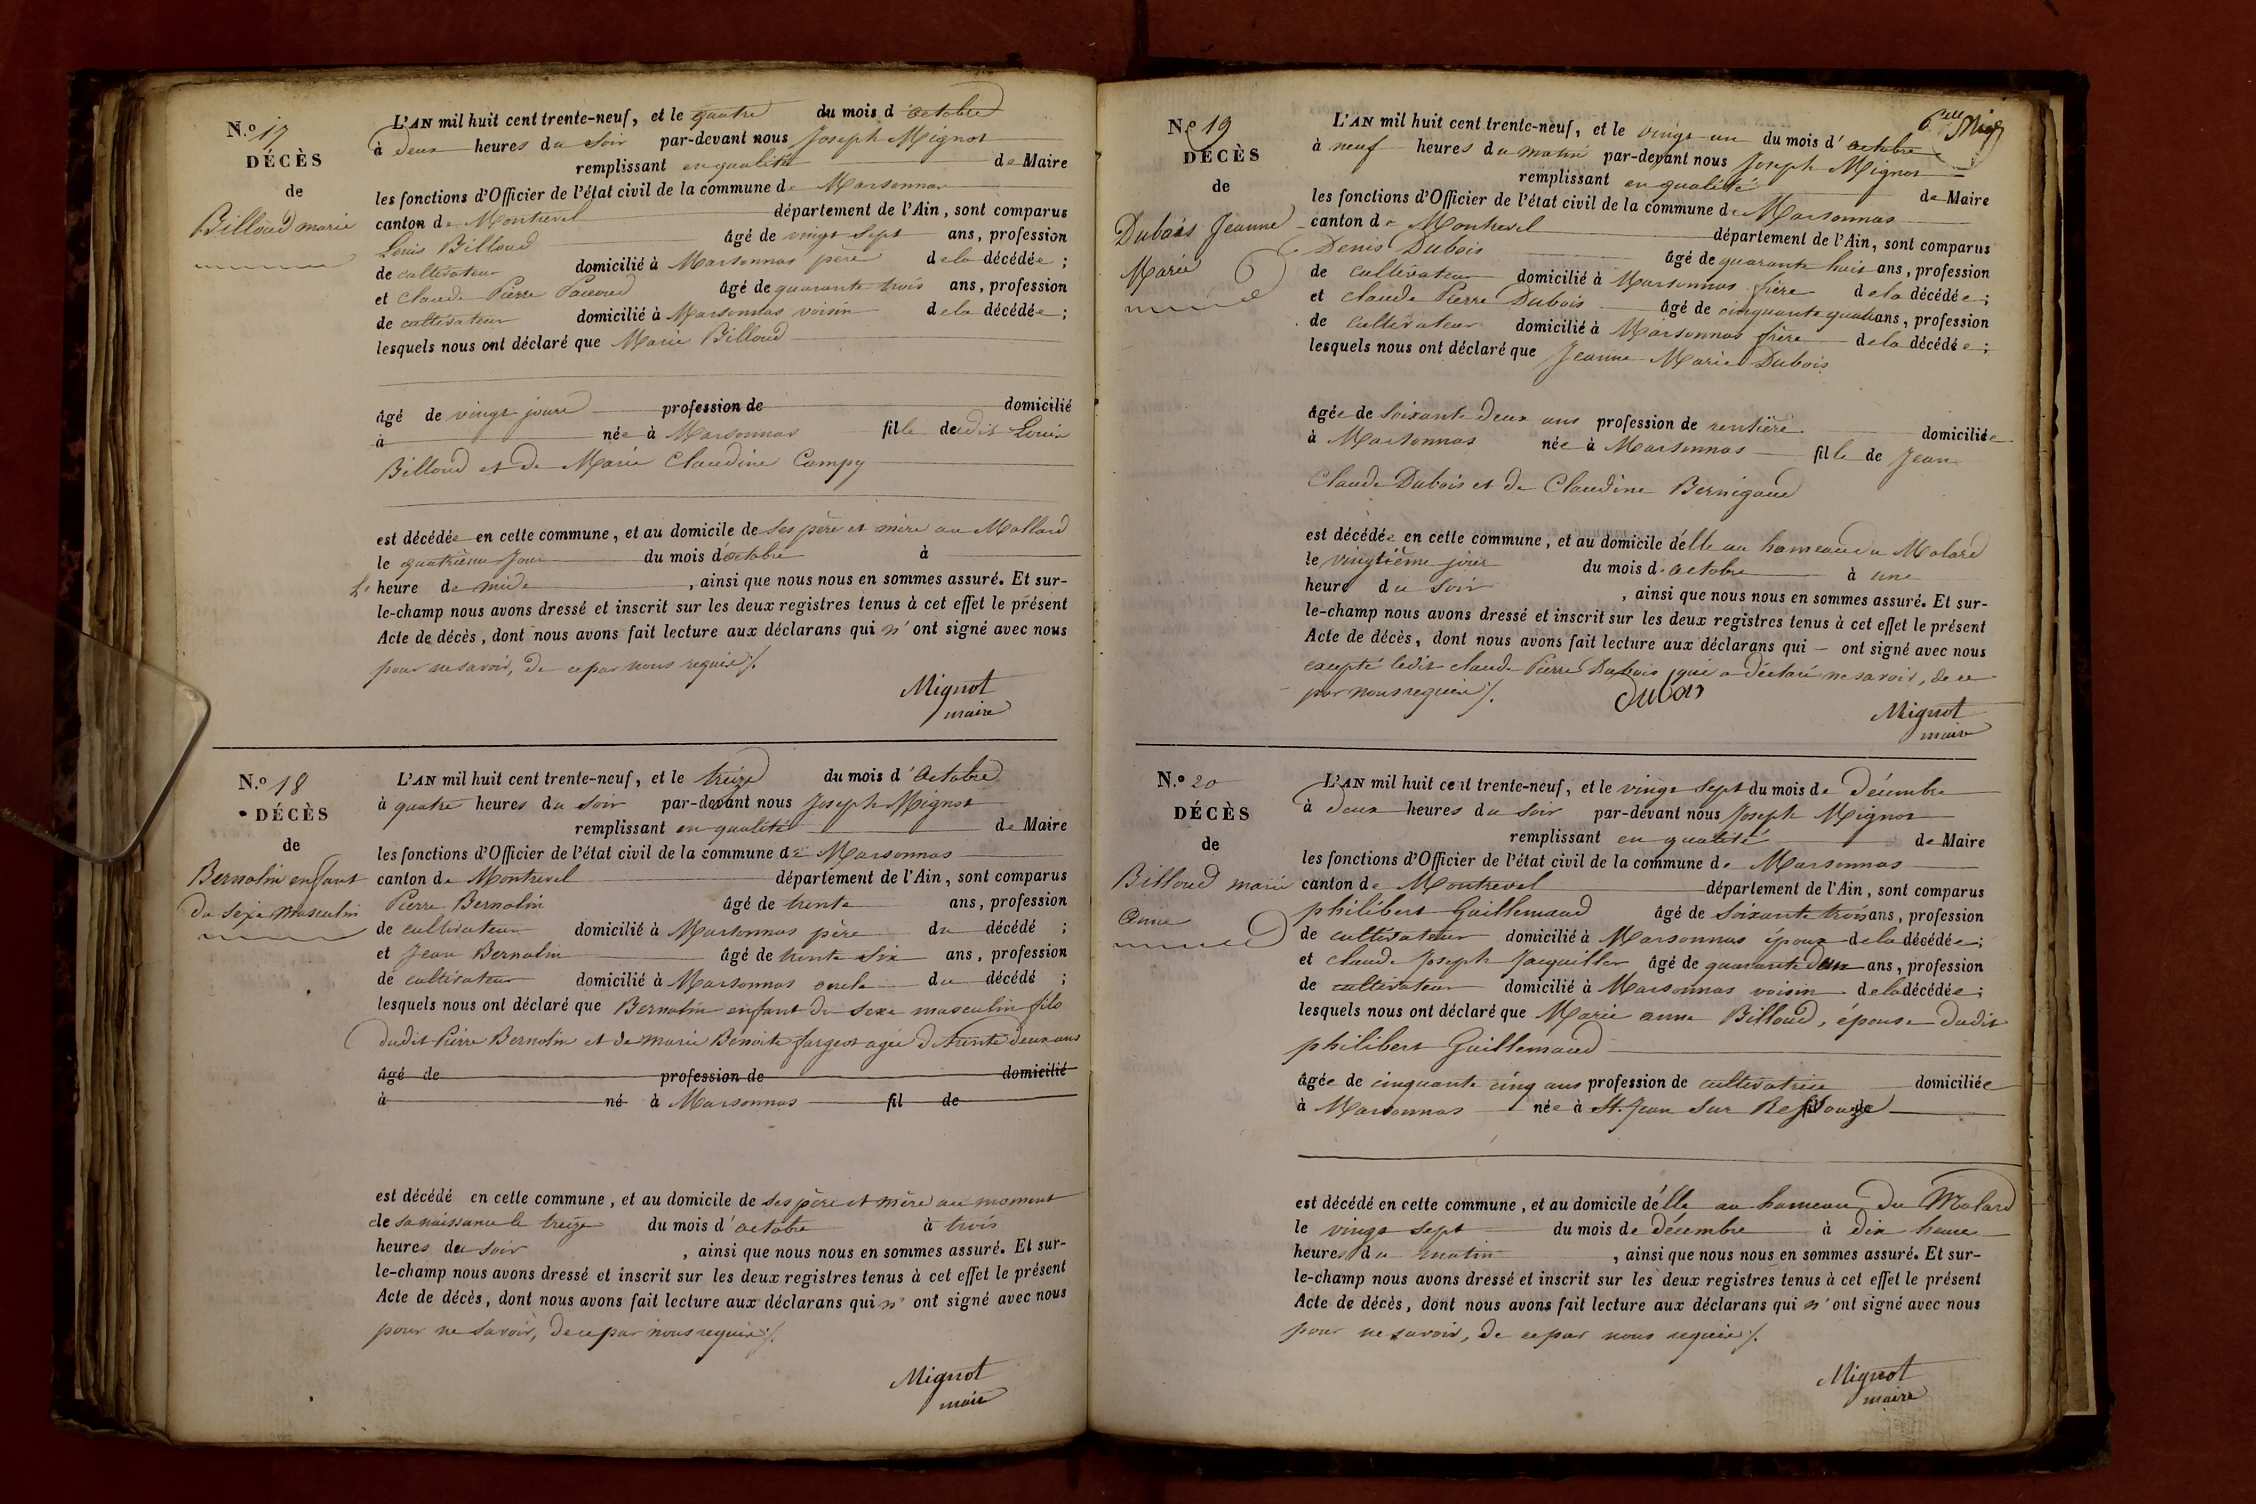 N.º 17
DÉCÈS
de
Billoud marie
L'AN mil huit cent trente-neuf, et le quatre du mois d'octobre
à deux heures du soir par-devant nous Joseph Mignot
remplissant en qualité de Maire
les fonctions d'Officier de l'état civil de la commune de Marsonnas
canton de Montrevel département de l'Ain, sont comparus
Louis Billoud âgé de vingt sept ans, profession
de cultivateur domicilié à Marsonnas père de la décédée ;
et Claude Pierre Pacoud âgé de quarante trois ans, profession
de cultivateur domicilié à Marsonnas voisin de la décédée ;
lesquels nous ont déclaré que Marie Billoud
âgé de vingt jours profession de domicilié
à née à Marsonnas fille dudit Louis
Billoud et de Marie Claudine Campy
est décédée en cette commune, et au domicile de ses père et mère au Mollard
le quatrième jour du mois d'octobre à
l'heure de midi , ainsi que nous nous en sommes assuré. Et sur-
le-champ nous avons dressé et inscrit sur les deux registres tenus à cet effet le présent
Acte de décès, dont nous avons fait lecture aux déclarans qui n'ont signé avec nous
pour ne savoir, de ce par nous requis /.
Mignot
maire
N.º 18
DÉCÈS
de
Bernolin enfant
du sexe masculin
L'AN mil huit cent trente-neuf, et le treize du mois d'Octobre
à quatre heures du soir par-devant nous Joseph Mignot
remplissant en qualité de Maire
les fonctions d'Officier de l'état civil de la commune de Marsonnas
canton de Montrevel département de l'Ain, sont comparus
Pierre Bernolin âgé de trente ans, profession
de cultivateur domicilié à Marsonnas père du décédé ;
et Jean Bernolin âgé de trente six ans, profession
de cultivateur domicilié à Marsonnas oncle du décédé ;
lesquels nous ont déclaré que Bernolin enfant du sexe masculin fils
dudit Pierre Bernolin et de marie Benoite fargeot agée de trente deux ans
âgé de profession de domicilié
à né à Marsonnas fil de
est décédé en cette commune, et au domicile de ses père et mère au moment
de sa naissance le treize du mois d'octobre à trois
heures du soir , ainsi que nous nous en sommes assuré. Et sur-
le-champ nous avons dressé et inscrit sur les deux registres tenus à cet effet le présent
Acte de décès, dont nous avons fait lecture aux déclarans qui n'ont signé avec nous
pour ne savoir, de ce par nous requis /.
Mignot
maire
N.º 19
DÉCÈS
de
Dubois Jeanne
Marie
L'AN mil huit cent trente-neuf, et le vingt un du mois d'octobre
à neuf heures du matin par-devant nous Joseph Mignot
remplissant en qualité de Maire
les fonctions d'Officier de l'état civil de la commune de Marsonnas
canton de Montrevel département de l'Ain, sont comparus
Denis Dubois âgé de quarante huit ans, profession
de cultivateur domicilié à Marsonnas frère de la décédée ;
et Claude Pierre Dubois âgé de cinquante quatre ans, profession
de cultivateur domicilié à Marsonnas frère de la décédée ;
lesquels nous ont déclaré que Jeanne Marie Dubois
âgée de soixante deux ans profession de rentière domiciliée
à Marsonnas née à Marsonnas fille de Jean
Claude Dubois et de Claudine Bernigaud
est décédée en cette commune, et au domicile d'elle au hameau du Molard
le vingtième jour du mois d'octobre à une
heure du soir , ainsi que nous nous en sommes assuré. Et sur-
le-champ nous avons dressé et inscrit sur les deux registres tenus à cet effet le présent
Acte de décès, dont nous avons fait lecture aux déclarans qui — ont signé avec nous
excepté ledit claude Pierre Dubois, qui a déclaré ne savoir, de ce
par nous requis /. Dubois
Mignot
maire
N.º 20
DÉCÈS
de
Billoud marie
anne
L'AN mil huit cent trente-neuf, et le vingt sept du mois de décembre
à deux heures du soir par-devant nous Joseph Mignot
remplissant en qualité de Maire
les fonctions d'Officier de l'état civil de la commune de Marsonnas
canton de Montrevel département de l'Ain, sont comparus
philibert Guillemaud âgé de soixante trois ans, profession
de cultivateur domicilié à Marsonnas époux de la décédée ;
et claude Joseph Jacquiller âgé de quarante deux ans, profession
de cultivateur domicilié à Marsonnas voisin de la décédée ;
lesquels nous ont déclaré que Marie anne Billoud, épouse dudit
philibert Guillemaud
âgée de cinquante cinq ans profession de cultivatrice domiciliée
à Marsonnas née à St. Jean Sur Reyssouze fil de
est décédé en cette commune, et au domicile d'elle au hameau du Molard
le vingt sept du mois de décembre à dix heure
heures du matin , ainsi que nous nous en sommes assuré. Et sur-
le-champ nous avons dressé et inscrit sur les deux registres tenus à cet effet le présent
Acte de décès, dont nous avons fait lecture aux déclarans qui n'ont signé avec nous
pour ne savoir, de ce par nous requis /.
Mignot
maire